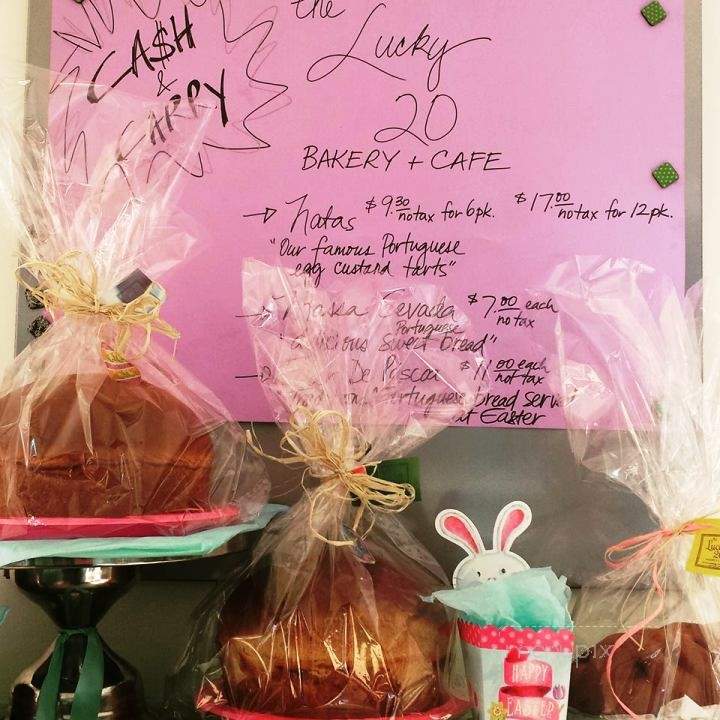 CA$H
&
CARRY
the
Lucky
20
BAKERY + CAFE
→ Natas $9.30 no tax for 6pk. $17.00 no tax for 12pk.
"Our famous Portuguese
egg custard tarts"
Massa Sevada $7.00 each
no tax
Portuguese
delicious sweet bread"
De Pascoa $11.00 each
not tax
Portuguese bread serv
at Easter
HAPPY
EASTER